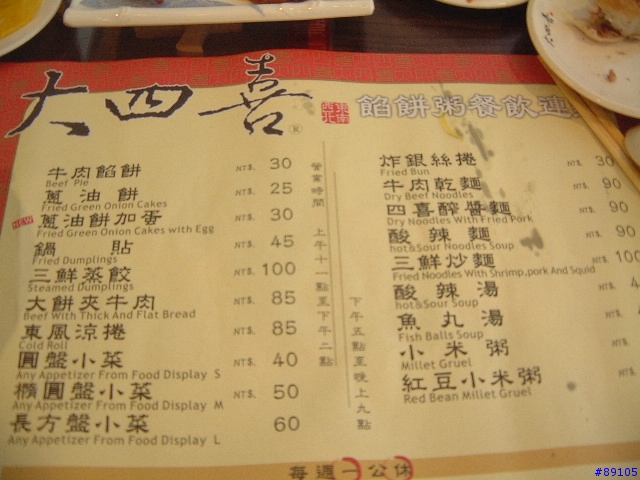 大四喜®
東南西北
餡餅粥餐飲連
牛肉餡餅 NT$. 30
Beef Pie
蔥油餅 NT$. 25
Fried Green Onion Cakes
NEW 蔥油餅加蛋 NT$. 30
Fried Green Onion Cakes with Egg
鍋貼 NT$. 45
Fried Dumplings
三鮮蒸餃 NT$. 100
Steamed Dumplings
大餅夾牛肉 NT$. 85
Beef With Thick And Flat Bread
東風涼捲 NT$. 85
Cold Roll
圓盤小菜 NT$. 40
Any Appetizer From Food Display S
橢圓盤小菜 NT$. 50
Any Appetizer From Food Display M
長方盤小菜 60
Any Appetizer From Food Display L
營業時間 上午十一點至下午二點
下午五點至晚上九點
炸銀絲捲 NT$. 30
Fried Bun
牛肉乾麵 NT$. 90
Dry Beef Noodles
四喜醡醬麵 NT$. 90
Dry Noodles With Fried Pork
酸辣麵 NT$. 90
hot&Sour Noodles Soup
三鮮炒麵 NT$. 100
Fried Noodles With Shrimp,pork And Squid
酸辣湯 NT$.
hot&Sour Soup
魚丸湯 NT$.
Fish Balls Soup
小米粥 NT$.
Millet Gruel
紅豆小米粥 NT$.
Red Bean Millet Gruel
每週一公休
#89105